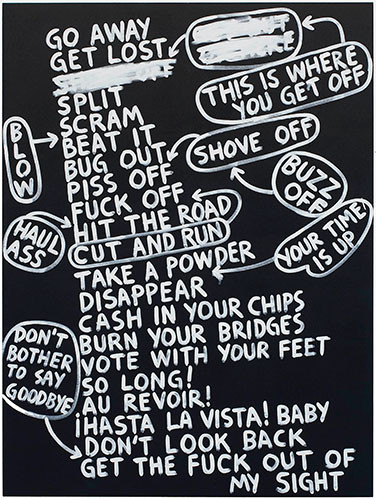 GO AWAY
GET LOST
THIS IS WHERE
YOU GET OFF
SPLIT
SCRAM
BLOW
BEAT IT
BUG OUT
SHOVE OFF
PISS OFF
BUZZ
OFF
FUCK OFF
HIT THE ROAD
HAUL
ASS
CUT AND RUN
YOUR TIME
IS UP
TAKE A POWDER
DISAPPEAR
CASH IN YOUR CHIPS
BURN YOUR BRIDGES
VOTE WITH YOUR FEET
DON'T
BOTHER
TO SAY
GOODBYE
SO LONG!
AU REVOIR!
¡HASTA LA VISTA! BABY
DON'T LOOK BACK
GET THE FUCK OUT OF
MY SIGHT